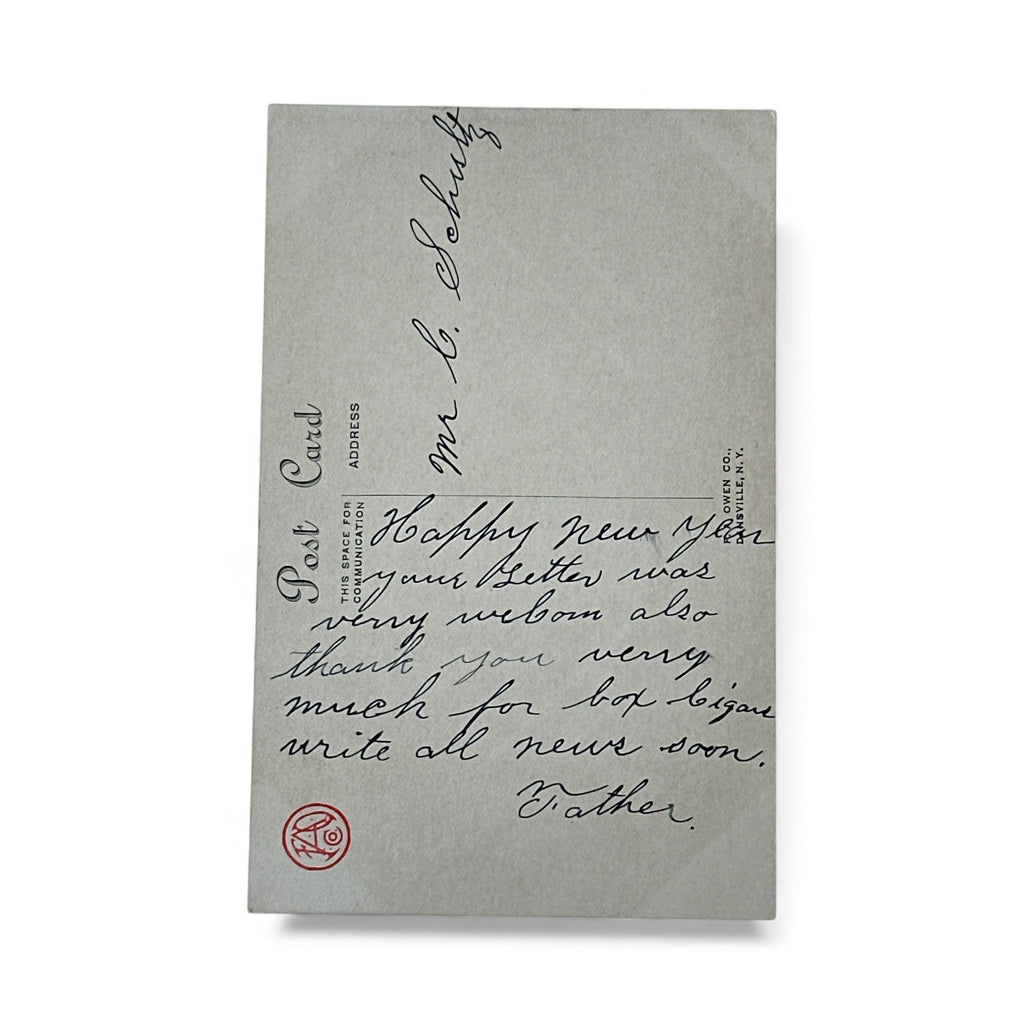 Post Card
ADDRESS
THIS SPACE FOR
COMMUNICATION
Mr C. Schultz
Happy New Year
your Letter was
verry welcom also
thank you verry
much for box Cigars
write all news soon.
Father.
OWEN CO.,
DANSVILLE, N.Y.